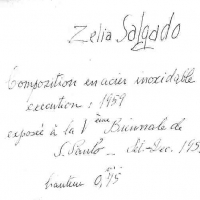 Zelia Salgado
Composition en acier inoxidable
execution : 1959
exposé à la V ème Biennale de
S. Paulo _ Set-Dec. 195
hauteur 0,75